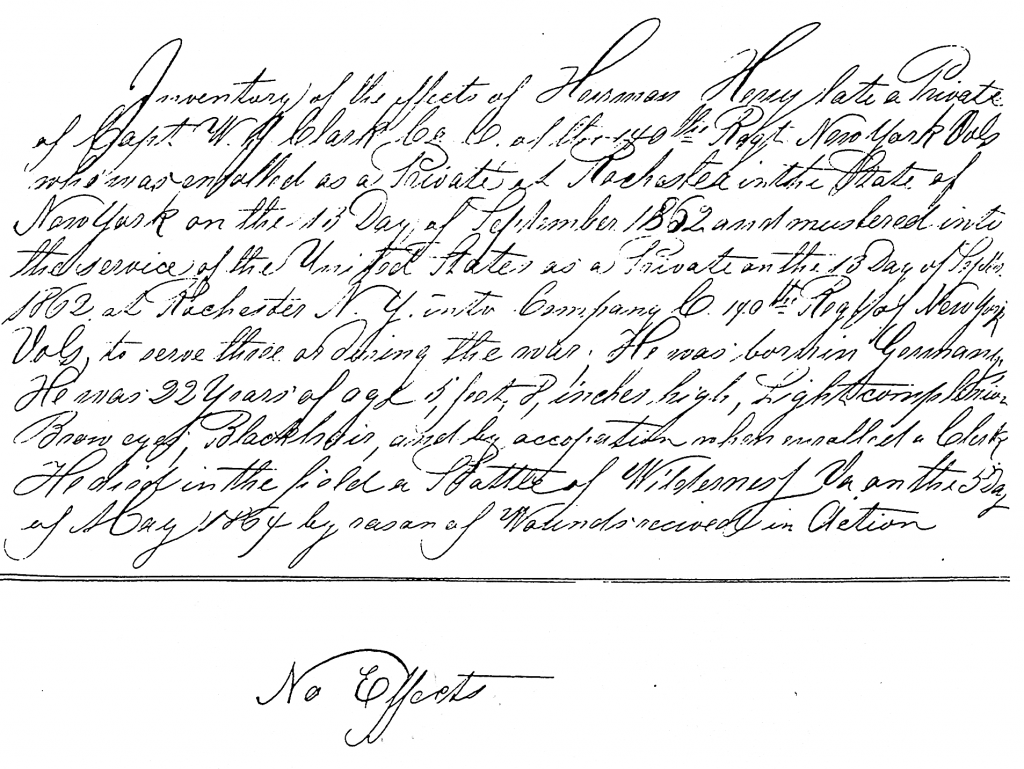 Inventory of the effects of Herman Henry late a Private
of Capt W. J Clark Co C. of the 140th Regt New York Vols
who was enrolled as a Private at Rochester in the State of
New York on the 13 Day of September 1862 and mustered into
the service of the United States as a Private on the 13 Day of Septbr.
1862 at Rochester N. Y. into Company C. 140th Regt of New York
Vols, to serve three or during the war. He was born in Germany,
He was 22 Years of age 5 feet, 8, inches high, Light complexion
Brow eyes, Black hair, and by accopation when enrolled a Clerk
He died in the field a Battle of Wilderness Va on the 5 Day
of May 1864 by reason of Wounds recived in Action
No Effects